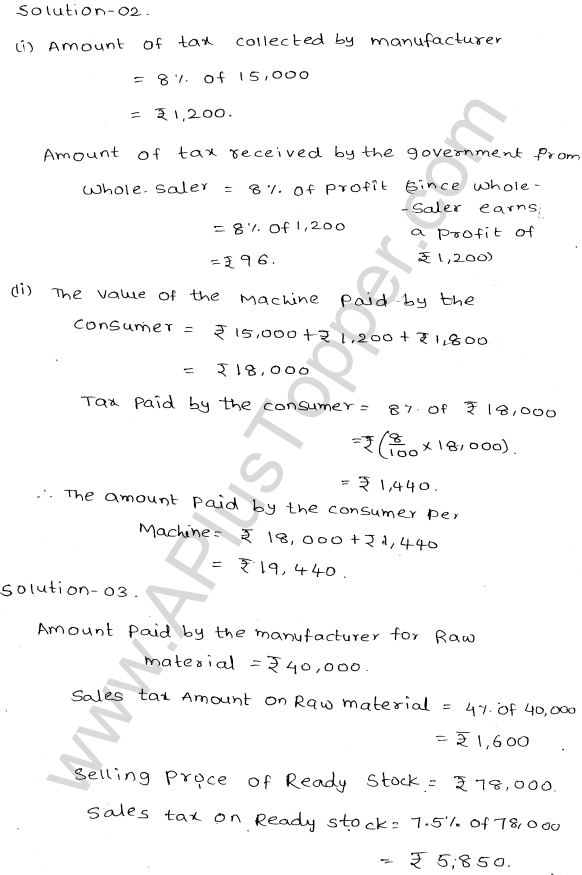 Solution-02.
(i) Amount of tax collected by manufacturer
= 8% of 15,000
= ₹1,200.
Amount of tax received by the government from
whole-saler = 8% of profit (Since whole-
-saler earns
= 8% of 1,200 a profit of
= ₹96. ₹1,200)
(ii) The value of the Machine paid by the
consumer = ₹15,000 + ₹1,200 + ₹1,800
= ₹18,000
Tax paid by the consumer = 8% of ₹18,000
= ₹(8/100 × 18,000).
= ₹1,440.
∴ The amount paid by the consumer per
Machine = ₹18,000 + ₹1,440
= ₹19,440.
Solution-03.
Amount paid by the manufacturer for Raw
material = ₹40,000.
Sales tax Amount on Raw material = 4% of 40,000
= ₹1,600.
Selling Proce of Ready Stock = ₹78,000.
Sales tax on Ready stock = 7.5% of 78,000
= ₹5,850.
www.APlusTopper.com